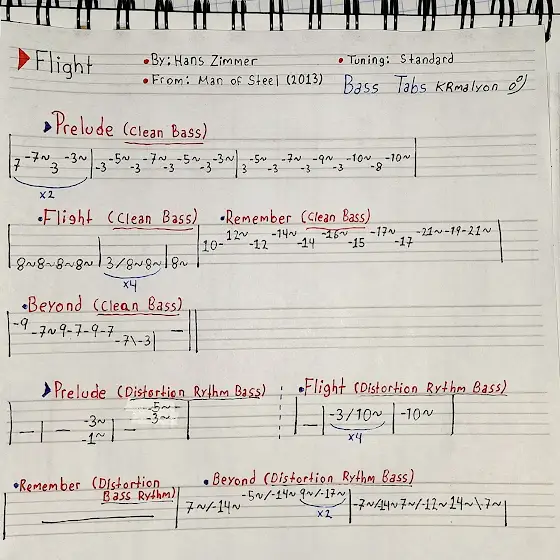 Flight
• By: Hans Zimmer
• Tuning: Standard
• From: Man of Steel (2013)
Bass Tabs KRmalyon
Prelude (Clean Bass)
-7~ -3~ -5~ -7~ -5~ -3~ -5~ -7~ -9~ -10~ -10~
7 3 -3 -3 -3 -3 3 -3 -3 -3 -8
x2
• Flight (Clean Bass)
8~8~8~8~ 3/8~8~ 8~
x4
• Remember (Clean Bass)
12~ -14~ -16~ -17~ -21~-19-21~
10- -12 -14 -15 -17
• Beyond (Clean Bass)
-9
-7~9-7-9-7
-7\-3 —
Prelude (Distortion Rythm Bass)
-5~
— — -3~ — -3~
-1~
• Flight (Distortion Rythm Bass)
— -3/10~ -10~
x4
• Remember (Distortion
Bass Rythm)
• Beyond (Distortion Rythm Bass)
-5~/-14~ 9~/-17~
7~/-14~ -7~/14~7~/-12~14~\7~
x2